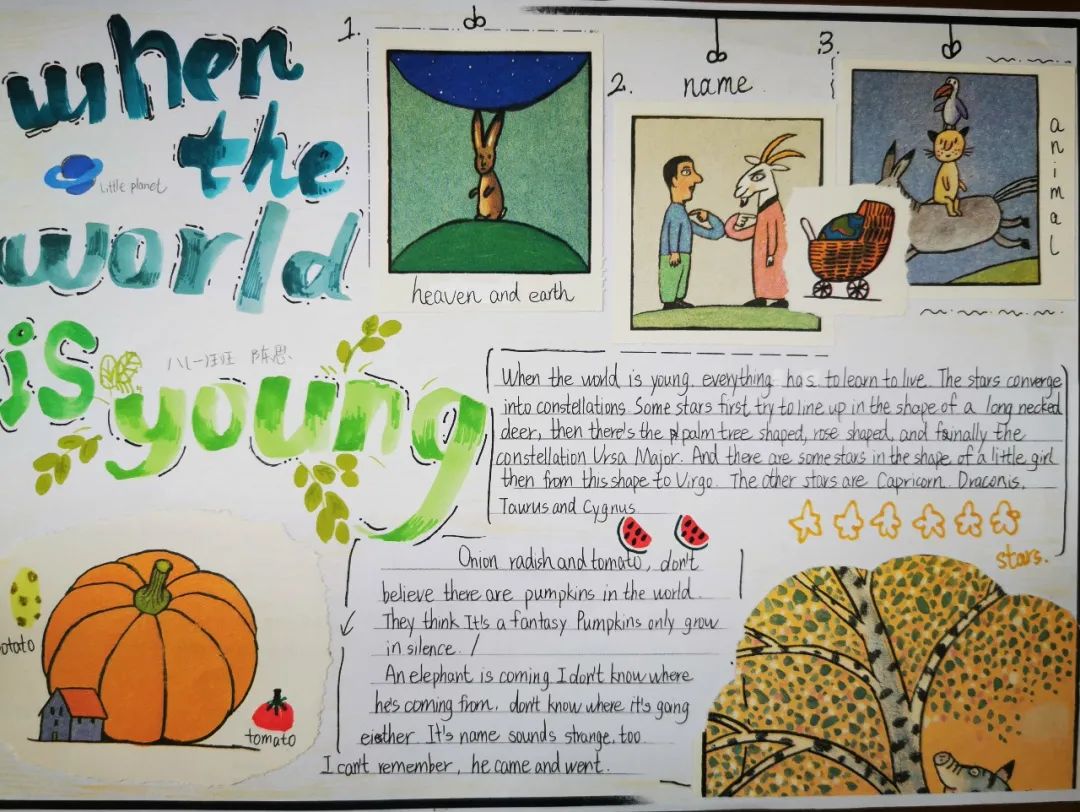 when
the
Little planet
world
is
young
八(一)班 陈思
1.
heaven and earth
2.
name.
3.
animal
When the world is young. everything has. to learn to live. The stars converge
into constellations. Some stars first try to line up in the shape of a long necked
deer, then there's the palm tree shaped, rose shaped, and fainally the
constellation Ursa Major. And there are some stars in the shape of a little girl
then from this shape to Virgo. The other stars are Capricorn. Draconis.
Taurus and Cygnus
stars.
Onion radish and tomato, don't
believe there are pumpkins in the world.
They think It's a fantasy Pumpkins only grow
in silence. /
An elephant is coming I don't know where
he's coming from, don't know where it's going
eiether. It's name sounds strange, too
I can't remember, he came and went.
otato
tomato